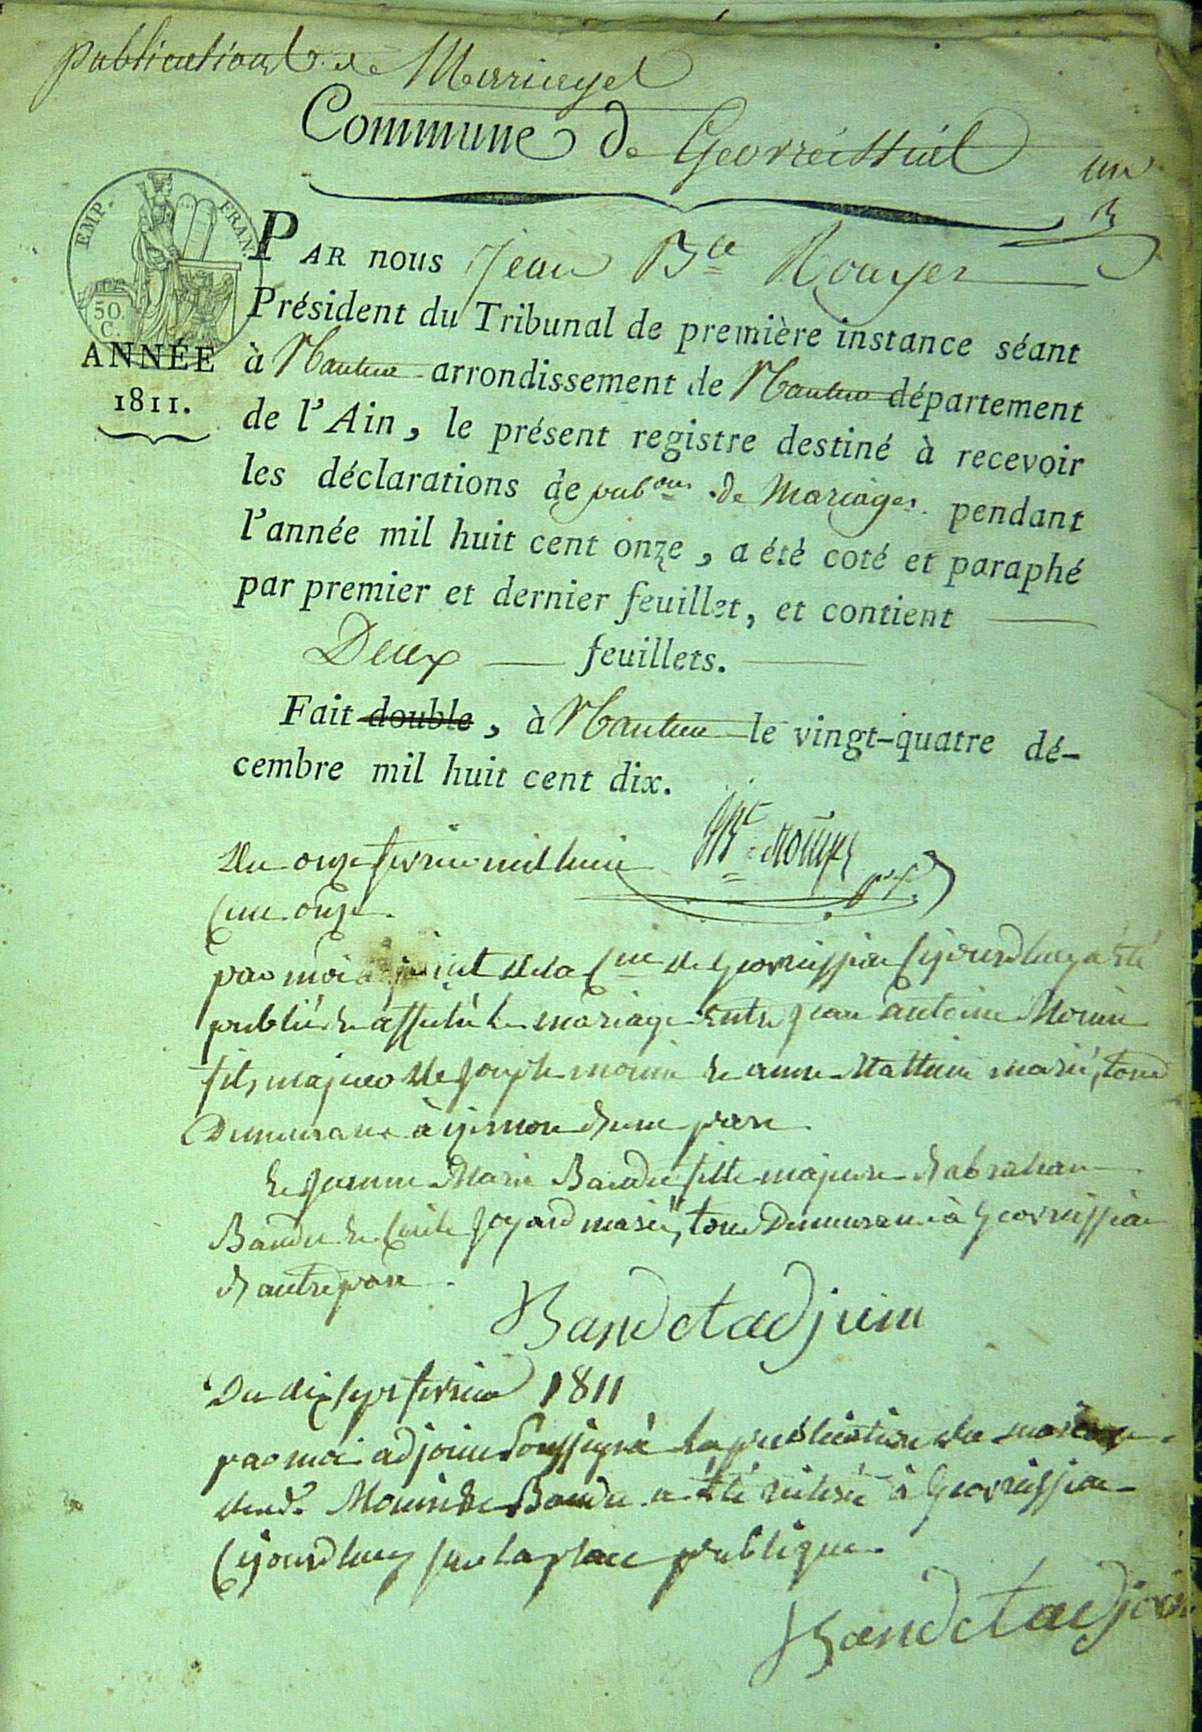 publications de Mariages
Commune de Géovreissiat
un
EMP. FRAN.
50.
C.
PAR nous Jean Bte Rouyer
Président du Tribunal de première instance séant
ANNÉE
à Nantua arrondissement de Nantua département
1811.
de l'Ain, le présent registre destiné à recevoir
les déclarations de pubons de Mariages pendant
l'année mil huit cent onze, a été coté et paraphé
par premier et dernier feuillet, et contient
Deux feuillets.
Fait double, à Nantua le vingt-quatre dé-
cembre mil huit cent dix.
Du onze fevrier mil huit
Bte Rouyer
Cent onze.
par moi adjoint de la Cne de Geovreissia Cejourdhuy a été
publié et affiché le mariage entre jean antoine Monin
fils majeur de joseph monin et anne Mathieu mariés, tous
Demeurant à d'une part
et jeanne Marie Baudet fille majeure d'abraham
Baudet et Cecile joyard mariés, tous Demeurant à Geovreissia
d'autre part.
Bandet adjoint
Du dix sept fevrier 1811
par moi adjoint Soussigné la publication du mariage
desd. Monin et Baudet a été réiterée à Geovreissia
Cejourdhuy sur la place publique.
Bandet adjoint